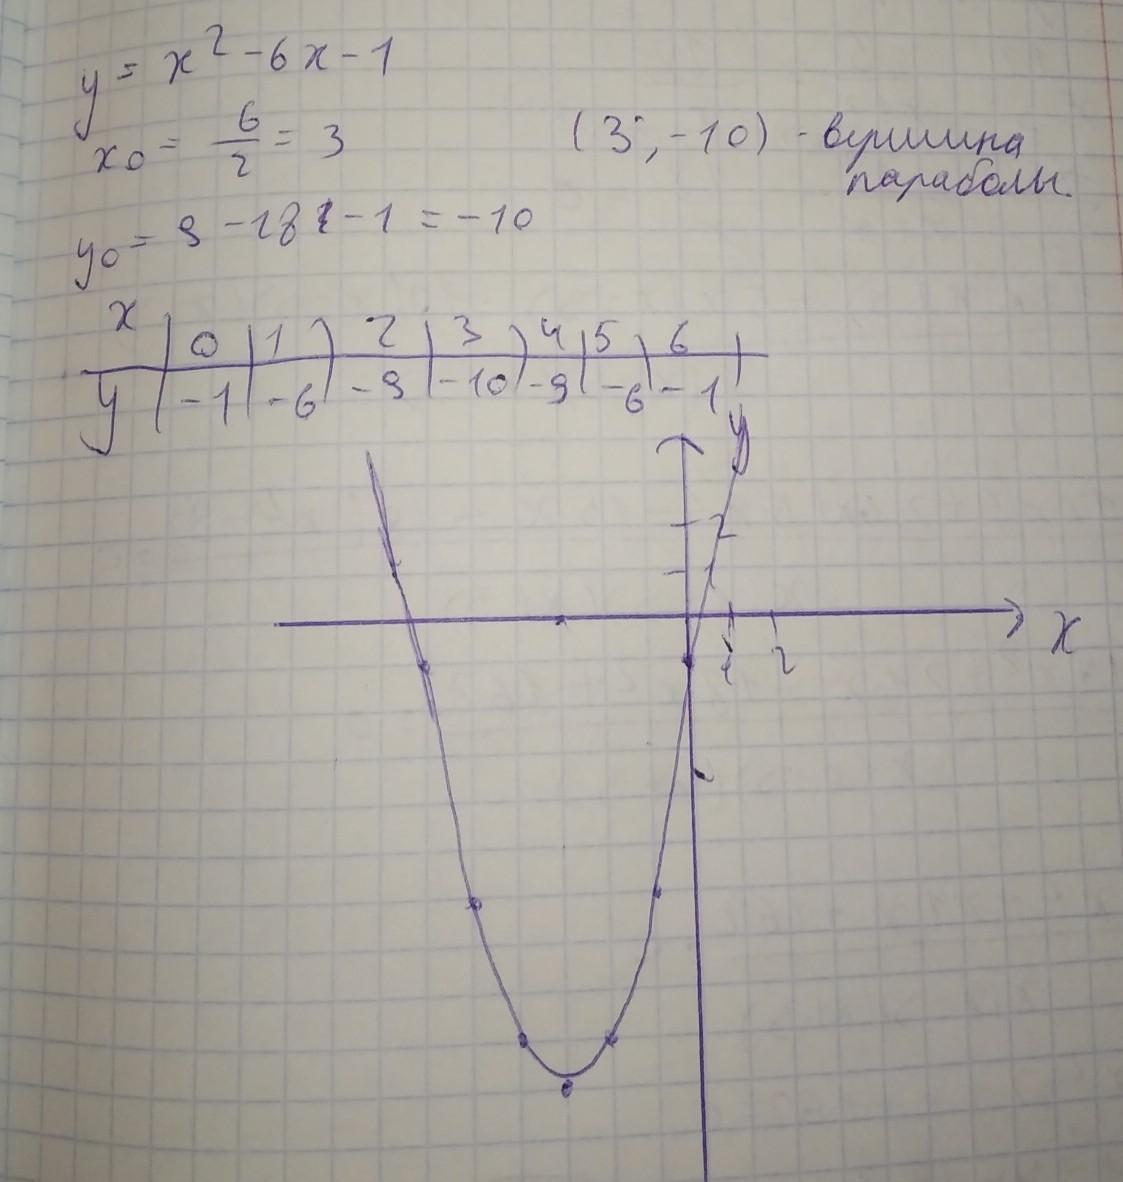 y = x² - 6x - 1
x₀ = 6/2 = 3
(3; -10) - вершина
параболы.
y₀ = 9 - 18 - 1 = -10
x | 0 | 1 | 2 | 3 | 4 | 5 | 6 |
y | -1 | -6 | -9 | -10 | -9 | -6 | -1 |
y
2
1
x
1 2